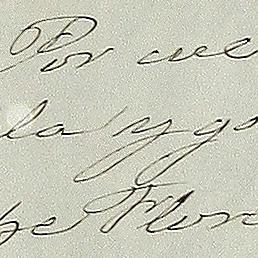 Por cue
la y go
pe Flore